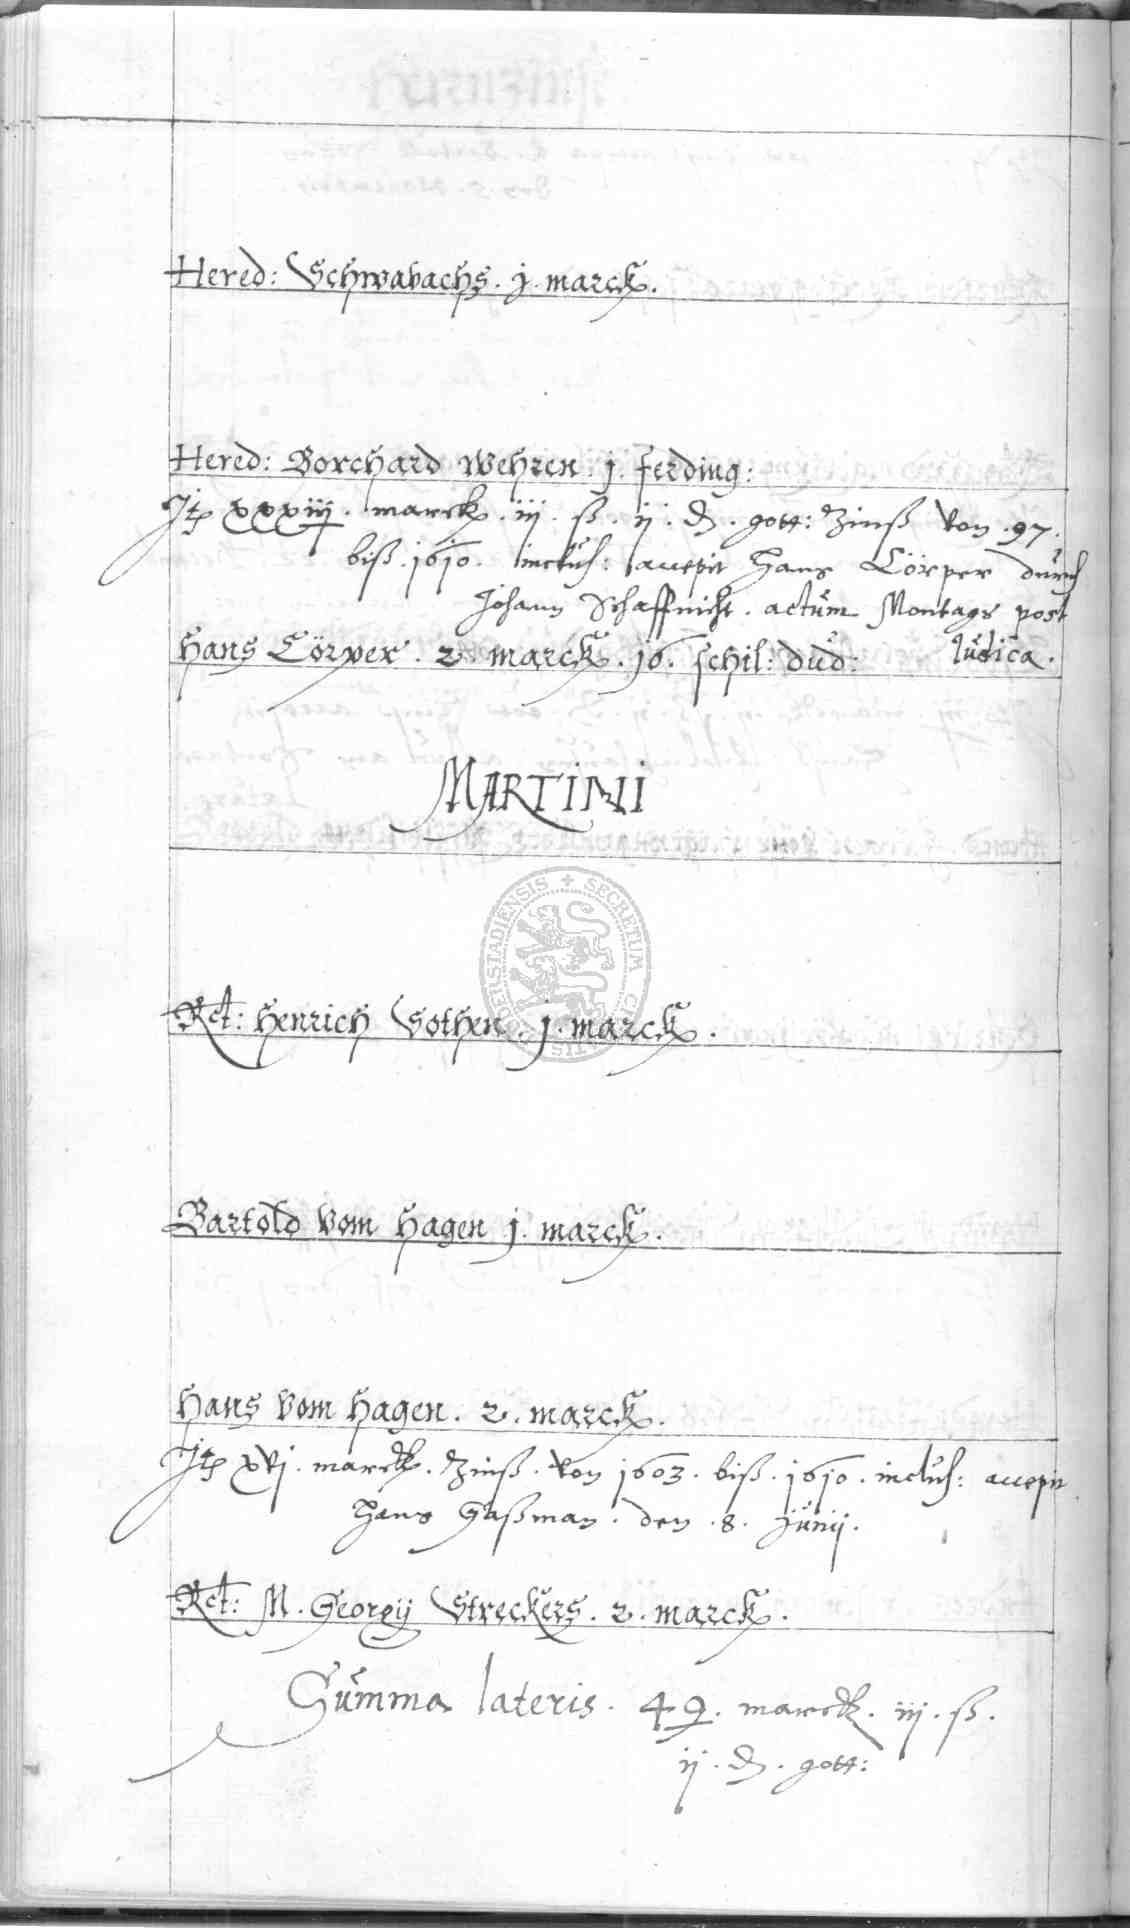 Hered: Schwabachs . j . marck .
Hered: Borchard Wehren j . ferding :
Jtem xxxiij . marck . iij . ß . ij . d . gott: Zinß von . 97 .
biß . 1610 . inclus: accepit Hans Cörper durch
Johann Schaffnicht . actum Montags post
Hans Cörper . 2 . marck . 16 . schil: dud: Judica .
MARTINI
SECRETUM
Rct: Henrich Sothen . j . marck .
Bartold vom Hagen j . marck .
Hans vom Hagen . 2 . marck .
Jtem xvj . marck . Zinß . von 1603 . biß . 1610 . inclus: accepit
Hans Gaßman . den . 8 . Junij .
Rct: M . Georgij Streckers . 2 . marck .
Summa lateris . 49 . marck . iij . ß .
ij . d . gott: